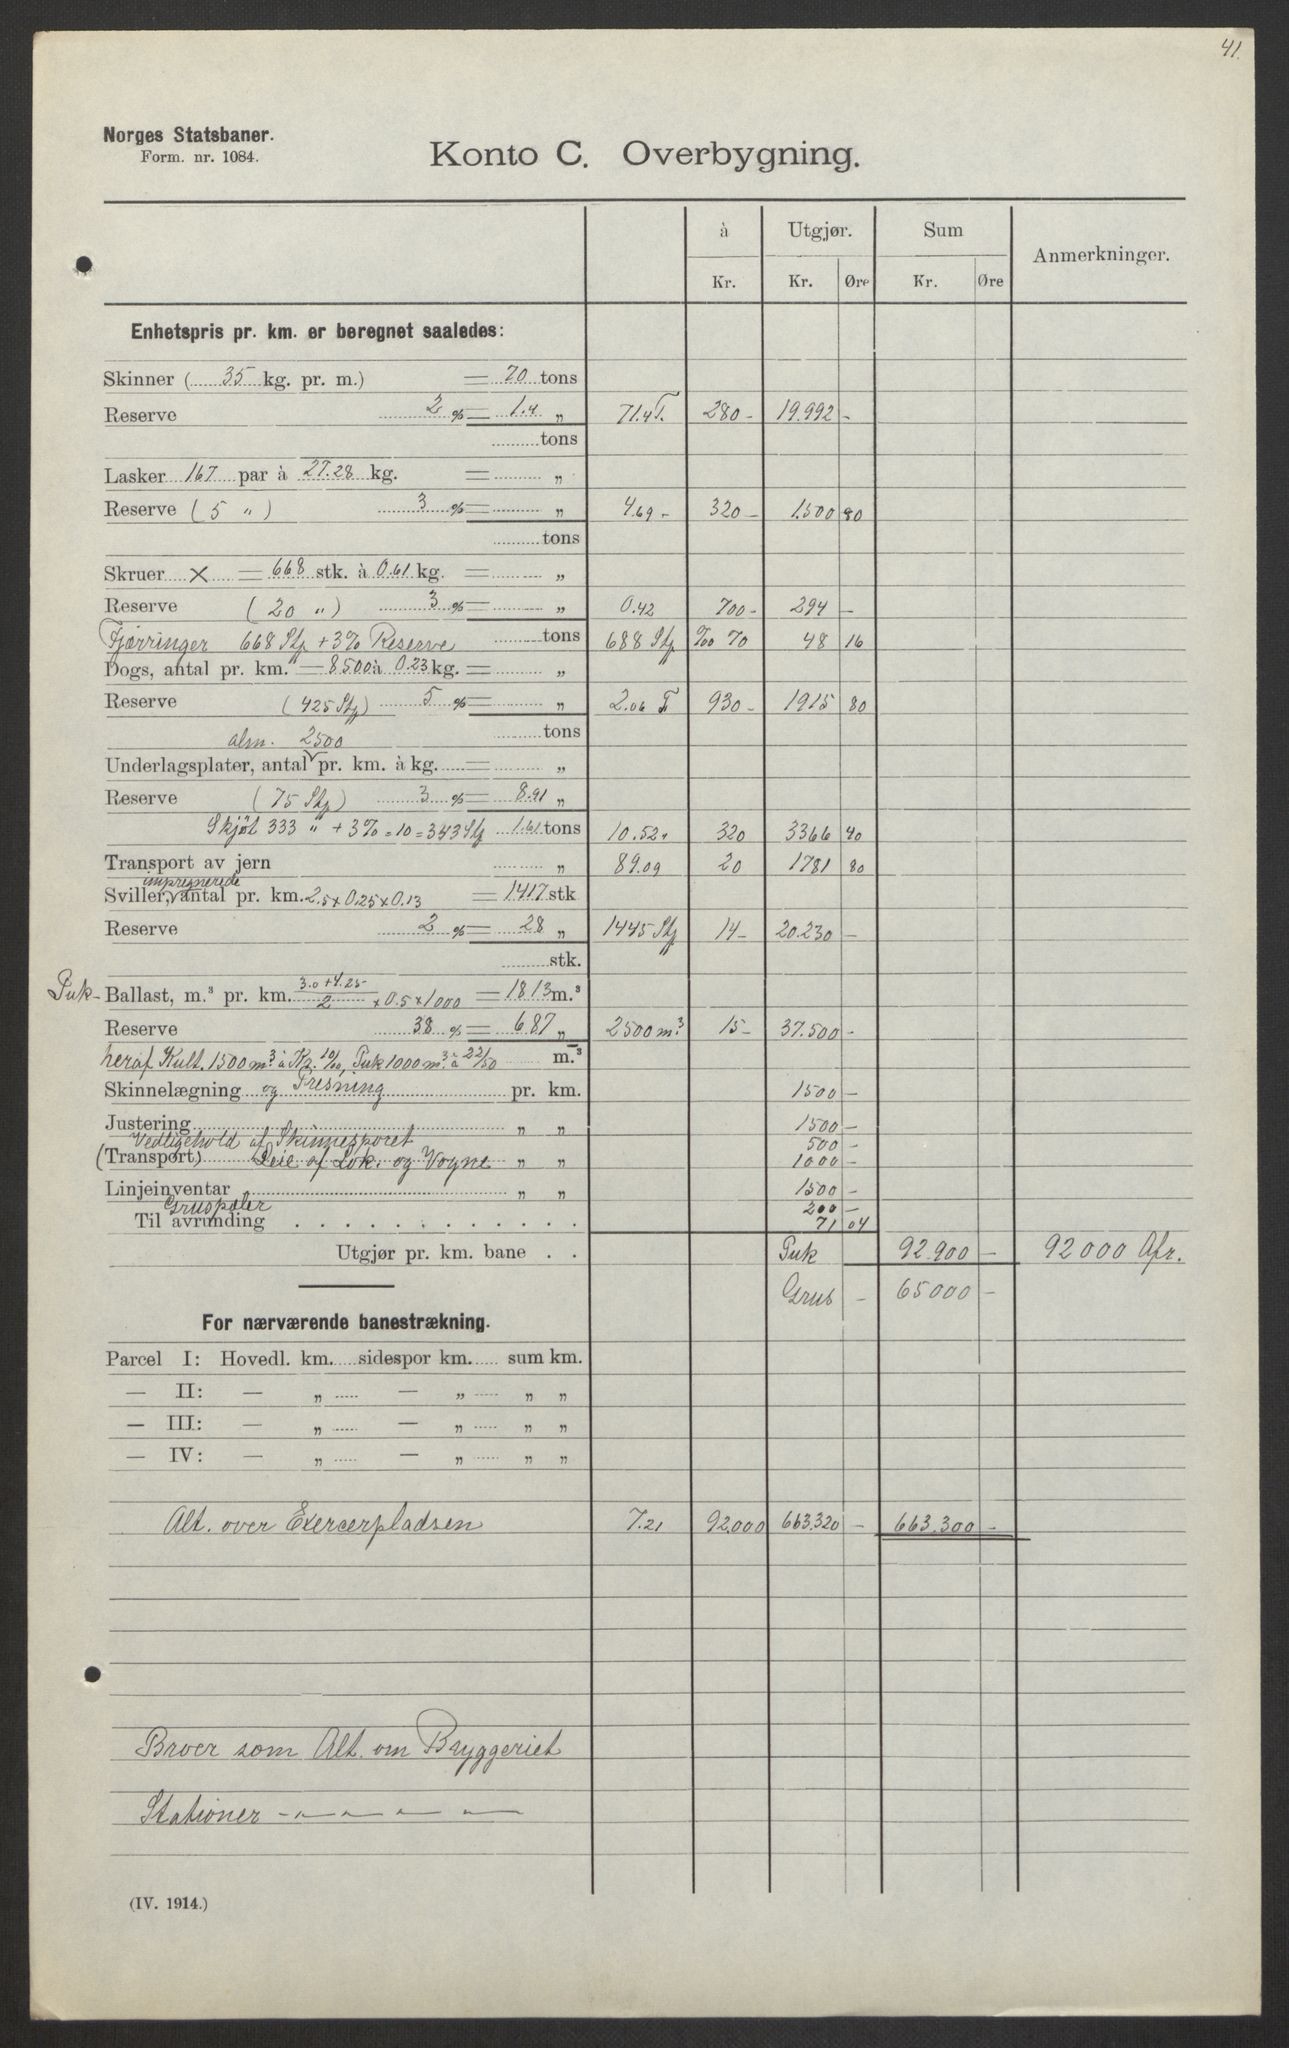 41.
Norges Statsbaner.
Form. nr. 1084.
Konto C. Overbygning.
à Utgjør. Sum Anmerkninger.
Kr. Kr. Øre Kr. Øre
Enhetspris pr. km. er beregnet saaledes:
Skinner ( 35 kg. pr. m.) = 70 tons
Reserve 2 % = 1.4 „ 71.4 T. 280 – 19.992 –
tons
Lasker 167 par à 27.28 kg. = „
Reserve ( 5 „ ) 3 % = „ 4.69 – 320 – 1.500 80
tons
Skruer × = 668 stk. à 0.61 kg. = „
Reserve ( 20 „ ) 3 % = „ 0.42 700 – 294 –
Fjærringer 668 Stk + 3% Reserve tons 688 Stk ‰ 70 48 16
Dogs, antal pr. km. = 8500 à 0.23 kg. = „
Reserve (425 Stk) 5 % = „ 2.06 T 930 – 1915 80
alm. 2500 tons
Underlagsplater, antal pr. km. à kg. = „
Reserve (75 Stk) 3 % = 8.91 „
Skjöt 333 „ + 3% = 10 = 343 Stk 1.61 tons 10.52 „ 320 3366 40
Transport av jern „ 89.09 20 1781 80
imprægnerede
Sviller, antal pr. km. 2.5 × 0.25 × 0.13 = 1417 stk
Reserve 2 % = 28 „ 1445 Stk 14 – 20.230 –
stk.
Puk- Ballast, m.³ pr. km. 3.0 + 4.25 / 2 × 0.5 × 1000 = 1813 m.³
Reserve 38 % = 687 „ 2500 m.³ 15 – 37.500 –
heraf Kult. 1500 m.³ à Kr. 10/00, Puk 1000 m.³ à 22/50 m.³
Skinnelægning og Presning pr. km. 1500 –
Justering „ „ 1500 –
Vedligehold af Skinnesporet 500 –
(Transport) Leie af Lok. og Vogne „ „ 1000 –
Linjeinventar „ „ 1500 –
Gruspæler 200 –
Til avrunding . . . . . . . . . . . . 71 04
Utgjør pr. km. bane . . Puk 92.900 – 92000 Afr.
Grus – 65000 –
For nærværende banestrækning.
Parcel I: Hovedl. km. sidespor km. sum km.
— II: — „ — „ „ „
— III: — „ — „ „ „
— IV: — „ — „ „ „
Alt. over Exercerpladsen 7.21 92.000 663.320 – 663.300 –
Broer som Alt. om Bryggeriet
Stationer – „ – „ – „ – „ –
(IV. 1914.)